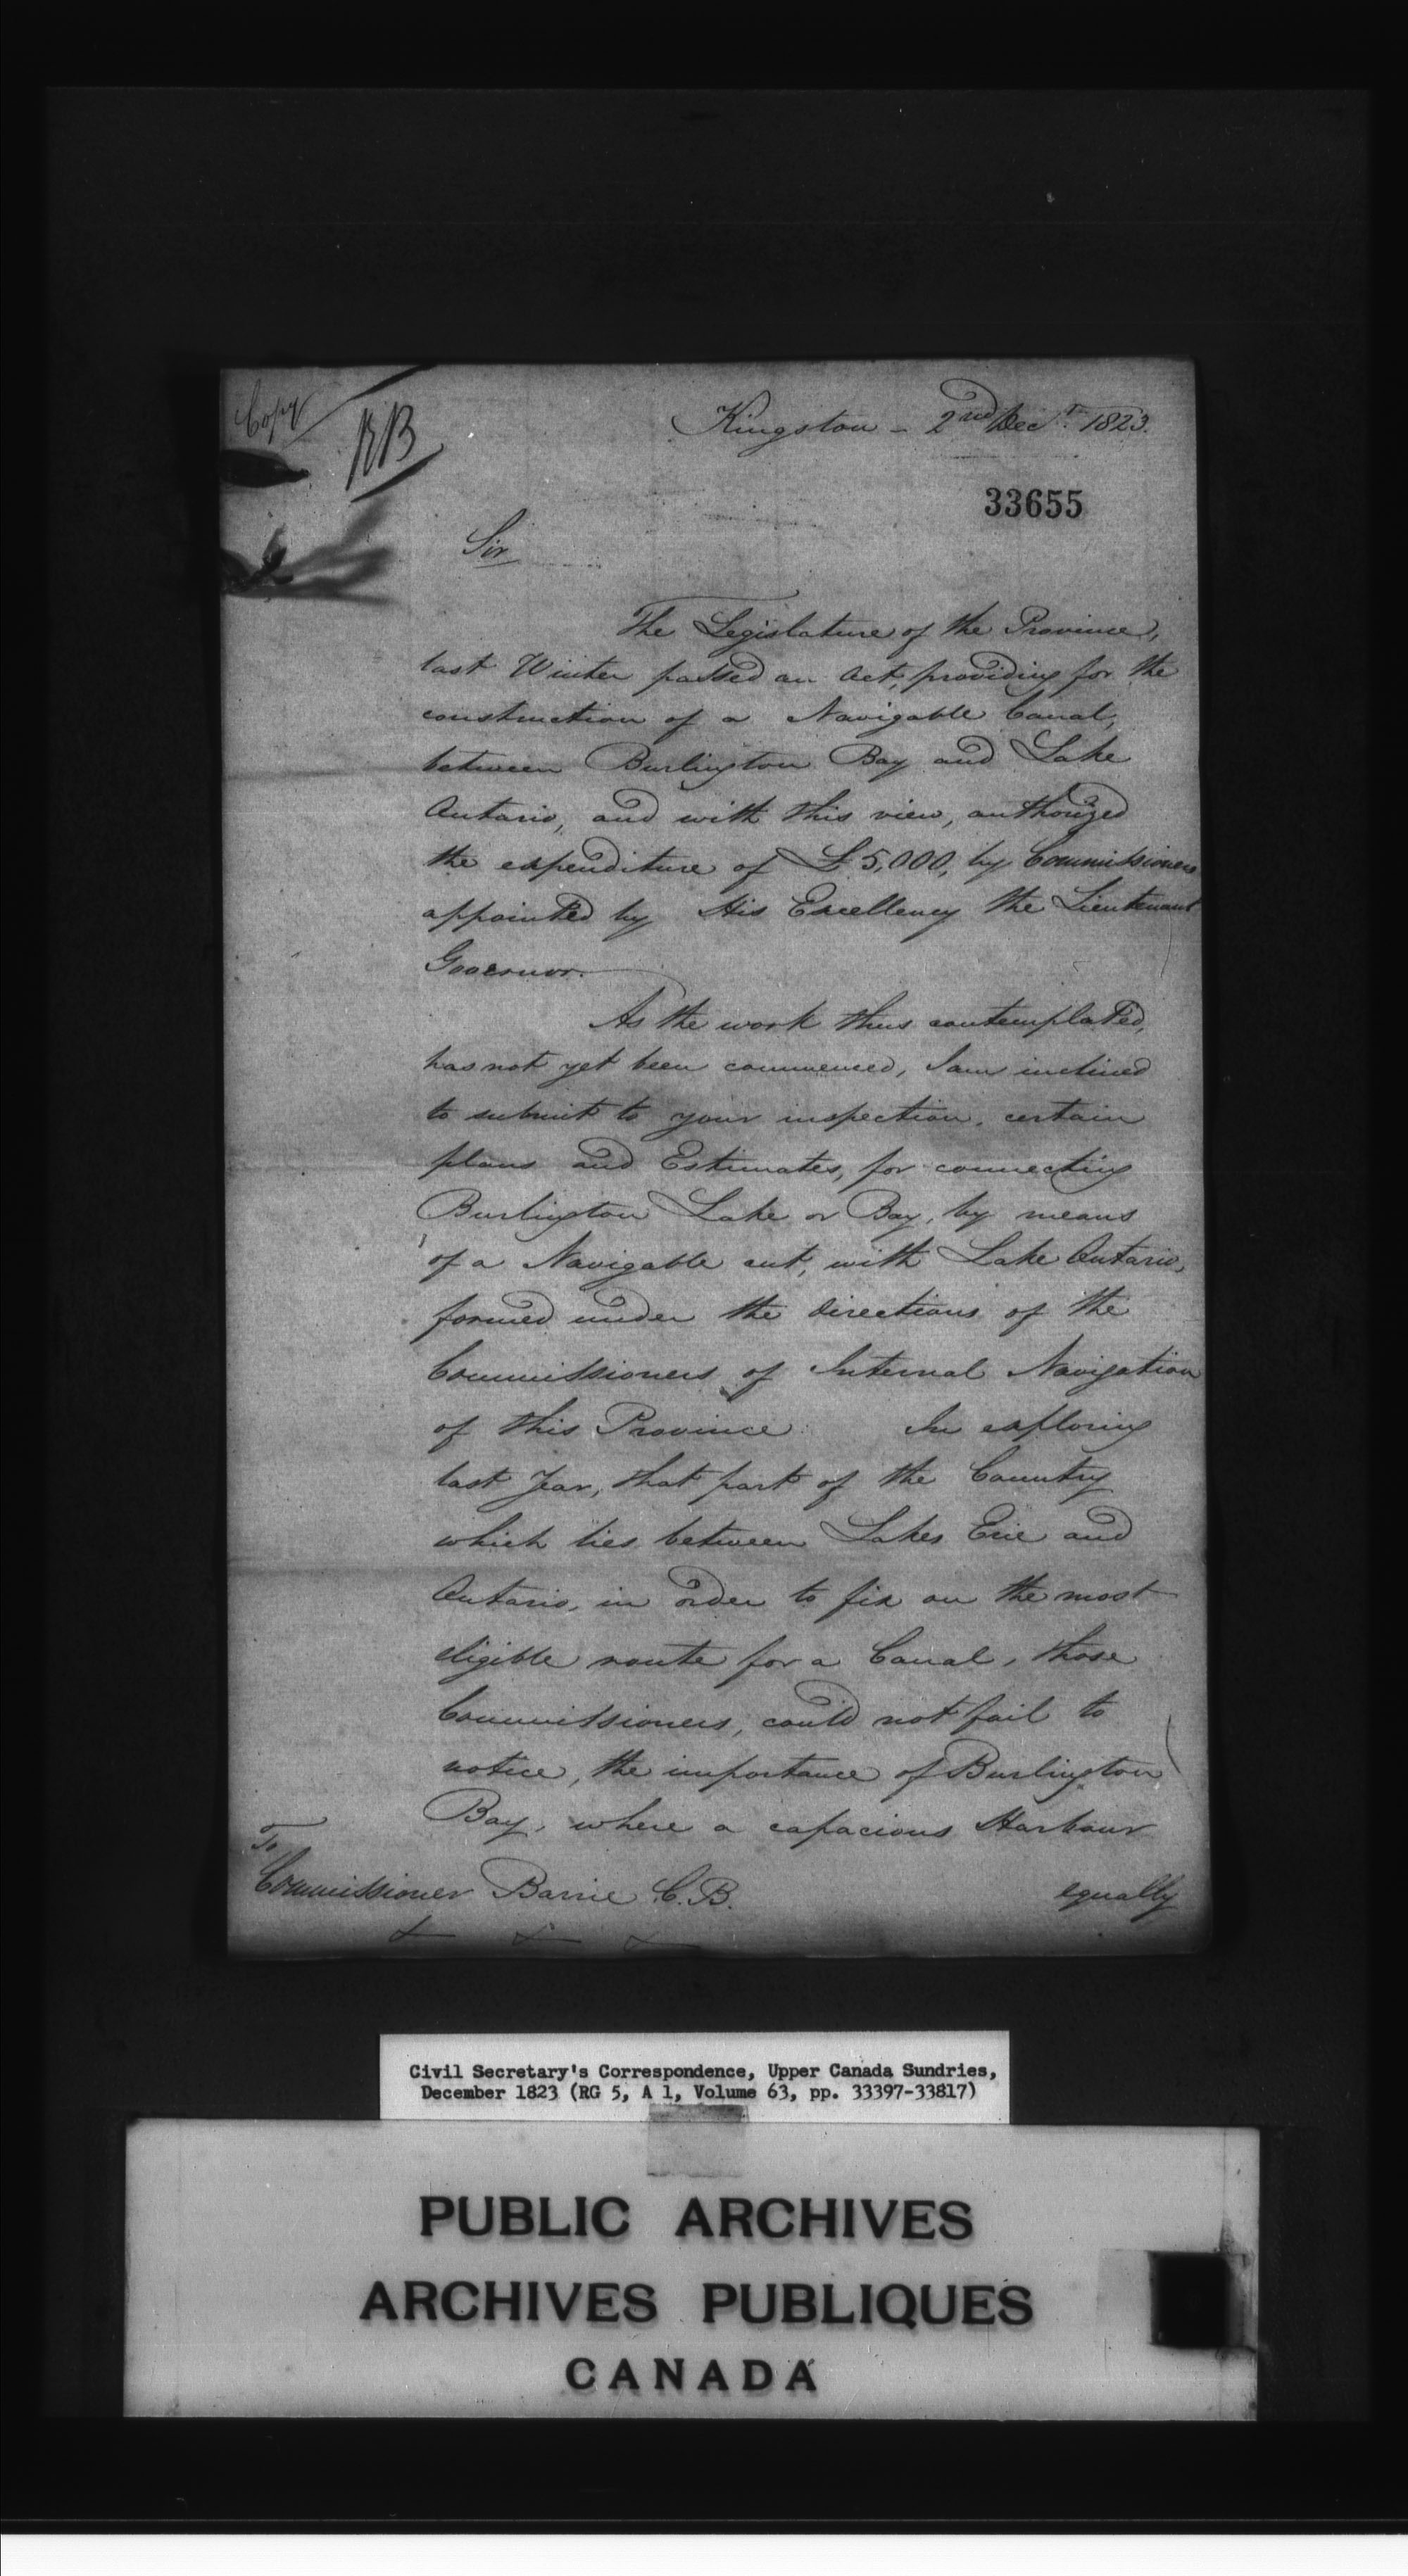 Copy
RB
Kingston - 2nd Decr. 1823.
33655
Sir
The Legislature of the Province,
last Winter passed an Act, providing for the
construction of a Navigable Canal,
between Burlington Bay and Lake
Ontario, and with this view, authorized
the expenditure of £5,000, by Commissioners
appointed by His Excellency the Lieutenant
Governor.
As the work thus contemplated,
has not yet been commenced, I am inclined
to submit to your inspection, certain
plans and Estimates, for connecting
Burlington Lake or Bay, by means
of a Navigable cut, with Lake Ontario,
formed under the directions of the
Commissioners of Internal Navigation
of this Province. In exploring
last Year, that part of the Country
which lies between Lakes Erie and
Ontario, in order to fix on the most
eligible route for a Canal, those
Commissioners, could not fail to
notice, the importance of Burlington
Bay, where a capacious Harbour
To
Commissioner Barrie C.B.
equally
Civil Secretary's Correspondence, Upper Canada Sundries,
December 1823 (RG 5, A 1, Volume 63, pp. 33397-33817)
PUBLIC ARCHIVES
ARCHIVES PUBLIQUES
CANADA